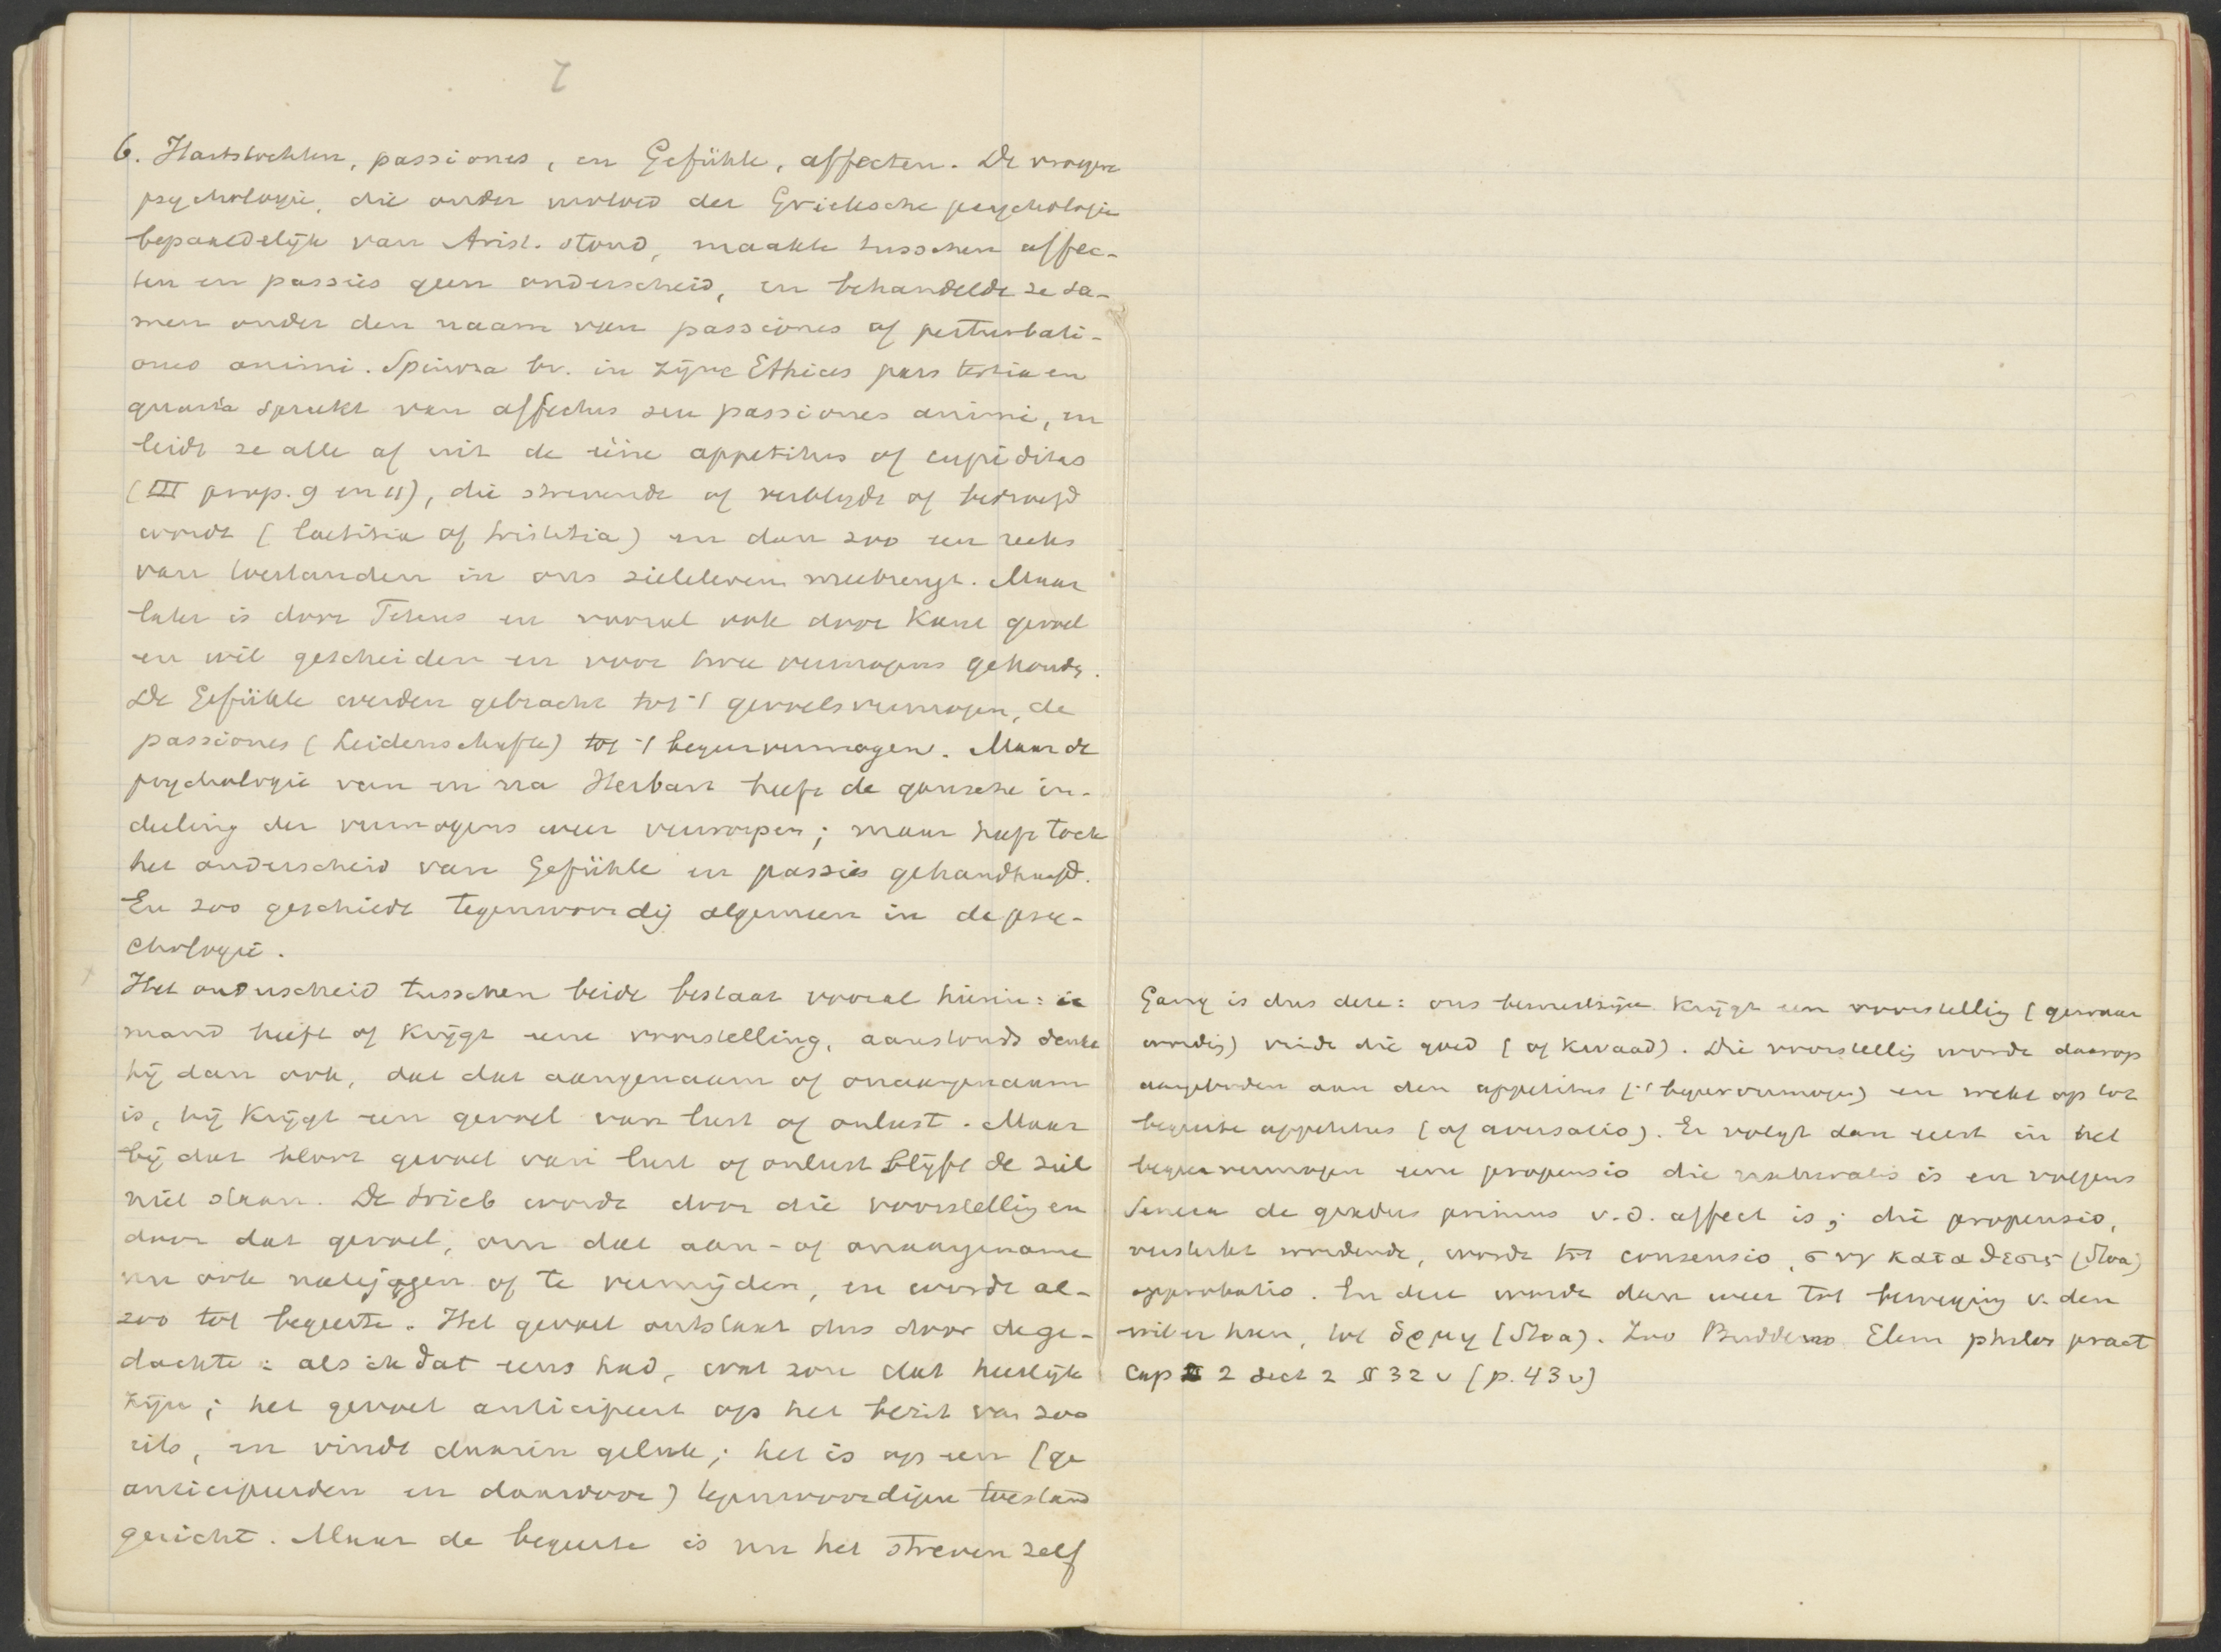 7
6. Hartstochten, passiones, en Gefühle, affecten. De vroegere
psychologie, die onder invloed der Grieksche psychologie
bepaaldelijk van Arist. stond, maakte tusschen affec-
ten en passies geen onderscheid, en behandelde ze sa-
men onder den naam van passiones of perturbati-
ones animi. Spinoza bv. in zijne Ethices pars tertia en
quarta spreekt van affectus seu passiones animi, en
leidt ze alle af uit de ééne appetitus of cupiditas
(III prop. 9 en 11), die strevende of verblijd of bedroefd
wordt (laetitia of tristitia) en dan zoo een reeks
van toestanden in ons zieleleven meebrengt. Maar
later is door Tetens en vooral ook door Kant gevoel
en wil gescheiden en voor twee vermogens gehoudn.
De Gefühle werden gebracht tot 't gevoelsvermogen, de
passiones (Leidenschafte) tot 't begeervermogen. Maar de
psychologie van en na Herbart heeft de gansche in-
deeling der vermogens weer verworpen; maar heeft toch
het onderscheid van Gefühle en passies gehandhaafd.
En zoo geschiedt tegenwoordig algemeen in de psy-
chologie.
Het onderscheid tusschen beide bestaat vooral hierin: ie
mand heeft of krijgt eene voorstelling, aanstonds denkt
hij dan ook, dat dat aangenaam of onaangenaam
is, hij krijgt een gevoel van lust of onlust. Maar
bij dat bloot gevoel van lust of onlust blijft de ziel
niet staan. De drieb wordt door die voorstelling en
door dat gevoel, om dat aan- of onaangename
nu ook najagen of te vermijden, en wordt al-
zoo tot begeerte. Het gevoel ontstaat dus door de ge-
dachte: als ik dat eens had, wat zou dat heerlijk
zijn; het gevoel anticipeert op het bezit van zoo
iets, en vindt daarin geluk; het is op een (ge
anticipeerden en daardoor) tegenwoordigen toestand
gericht. Maar de begeerte is nu het streven zelf
Gang is dus deze: ons bewustzijn krijgt een voorstelling (gewaar
wording) vindt die goed (of kwaad). Die voorstelling wordt daarop
aangeboden aan den appetitus ('t begeervermogen) en wekt op tot
begeerte appetitus (of aversatio). Er volgt dan eerst in het
begeervermogen eene propensio die naturalis is en volgens
Seneca de gradus primus v.d. affect is; die propensio,
versterkt wordende, wordt tot consensio, συγκαταθεσις (Stoa)
approbatio. En deze wordt dan weer tot beweging v. den
wil er heen, tot ὁρμη (Stoa). Zoo Buddeus Elem philos pract
Cap 2 sect 2 § 32 v (p. 43 v)